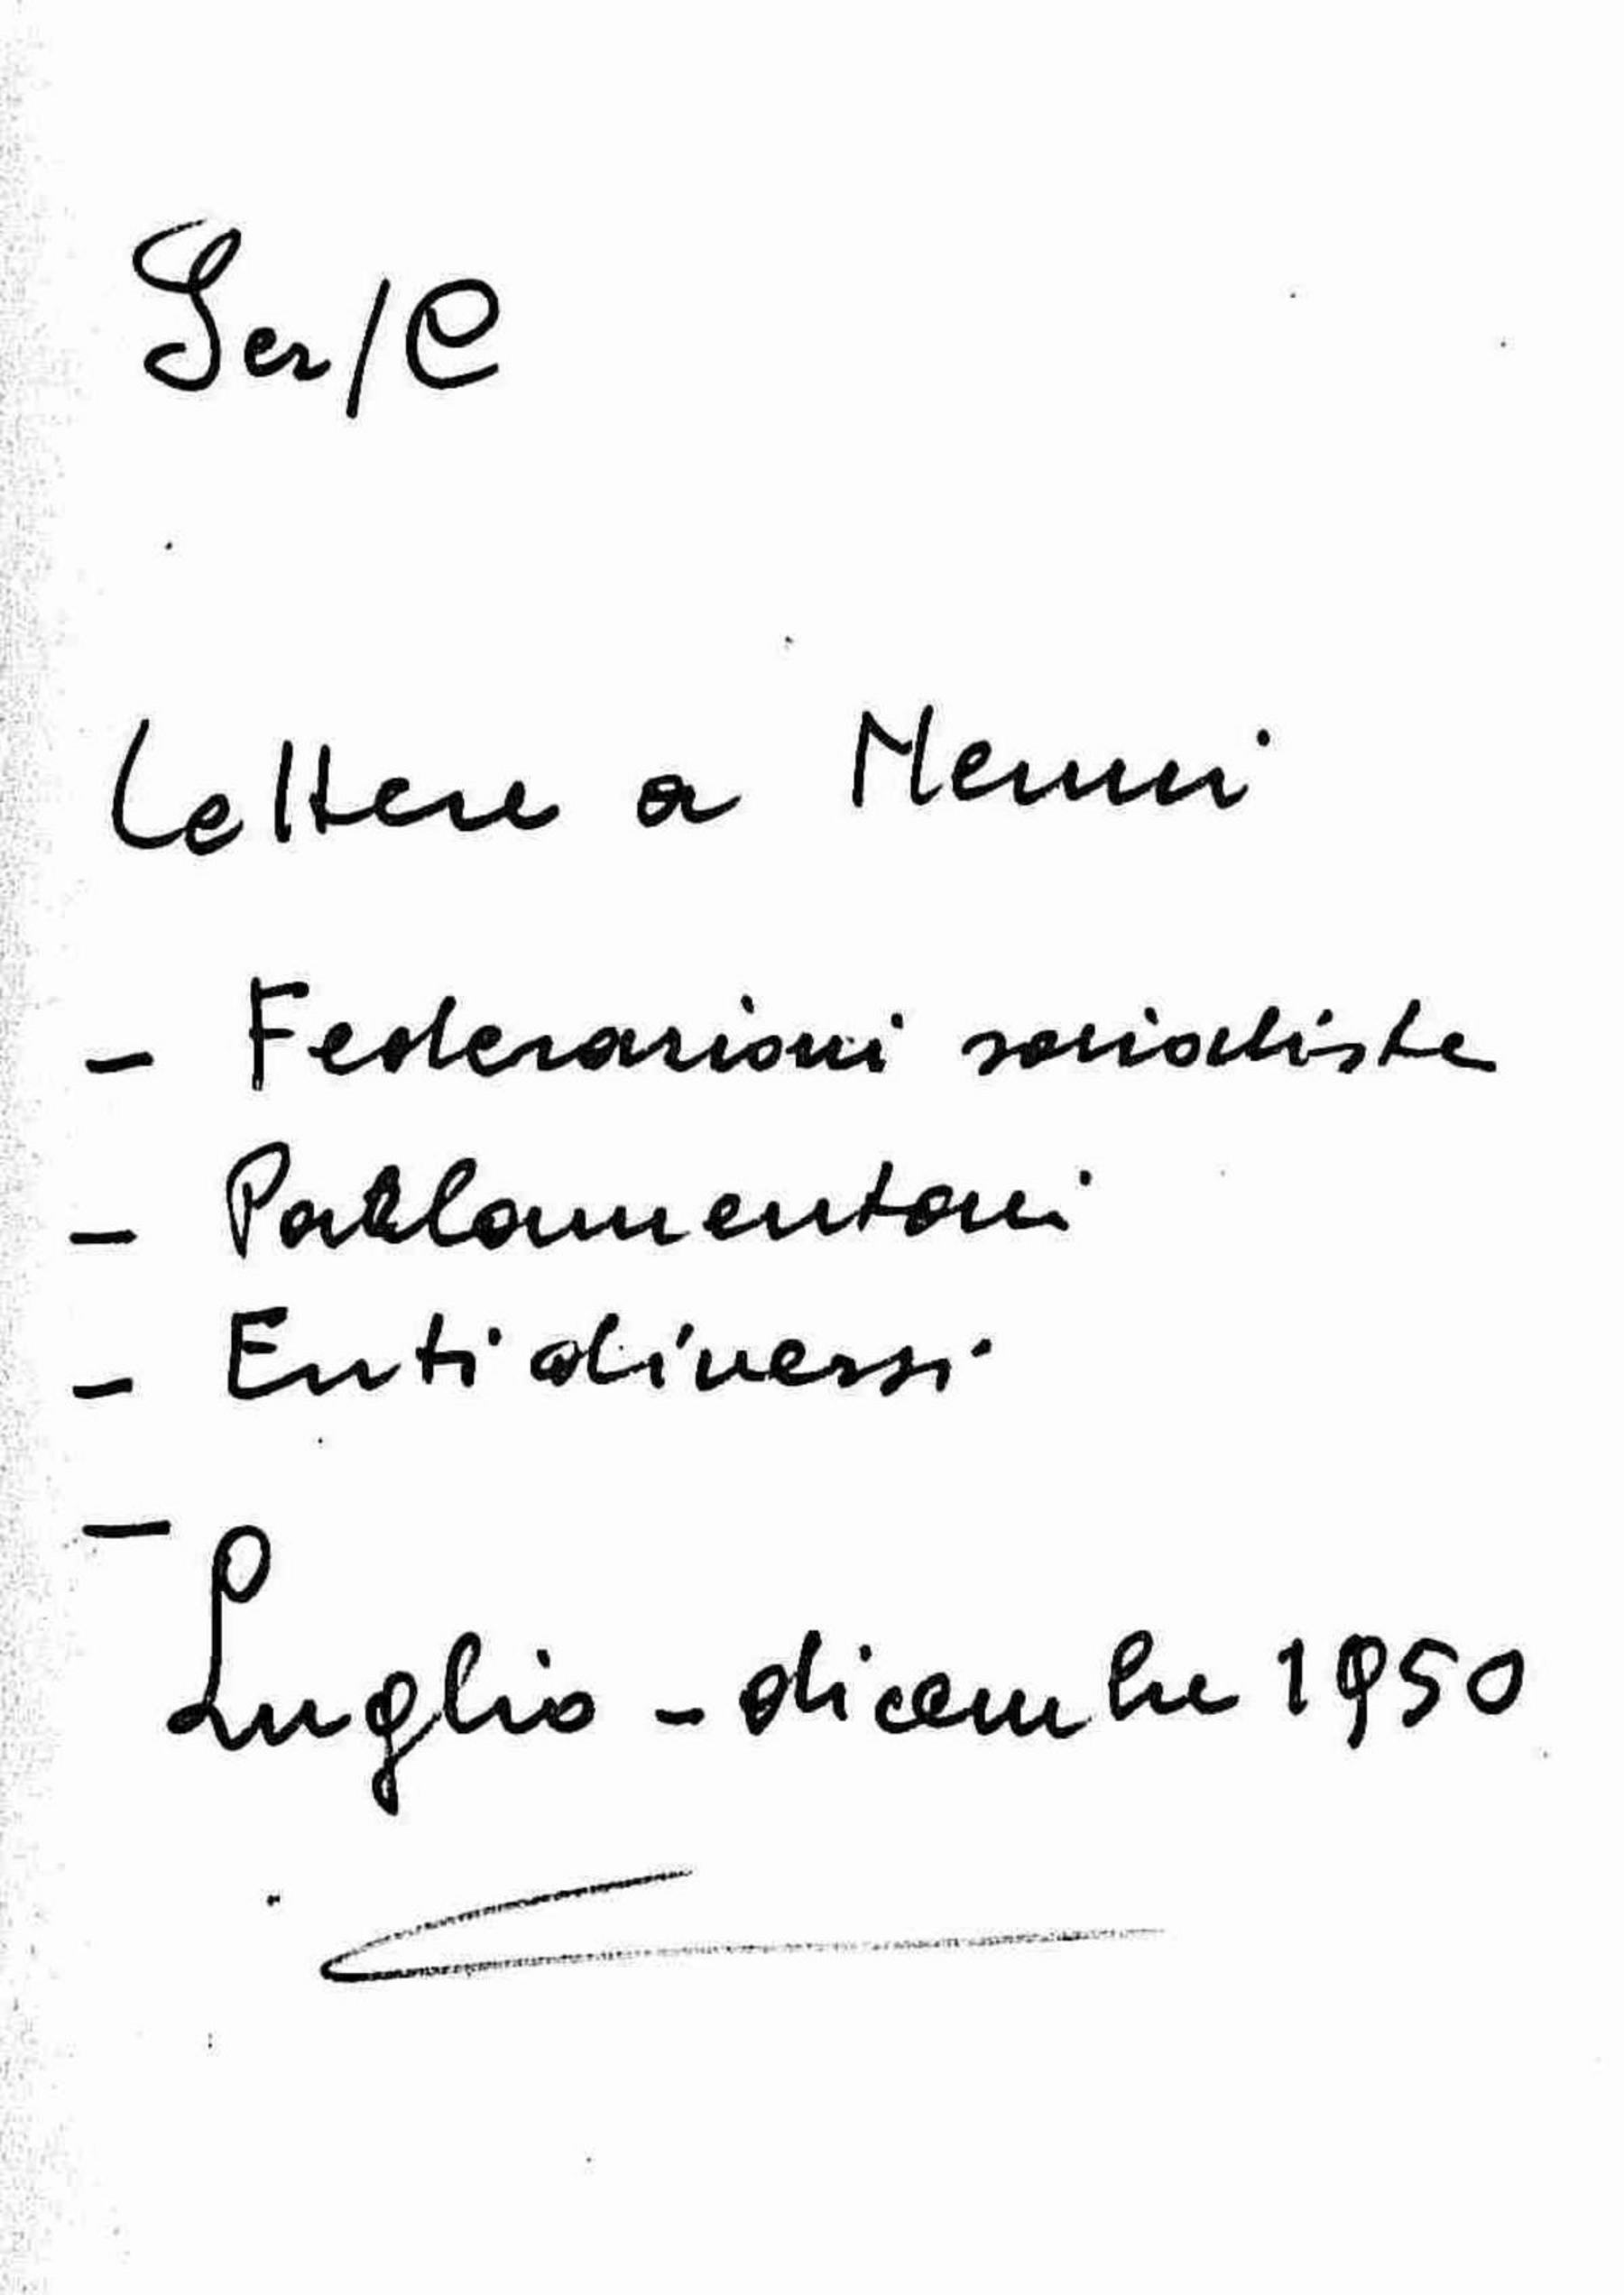 Ser/C
Lettere a Nenni
- Federazioni socialiste
- Parlamentari
- Enti diversi
-
Luglio - dicembre 1950